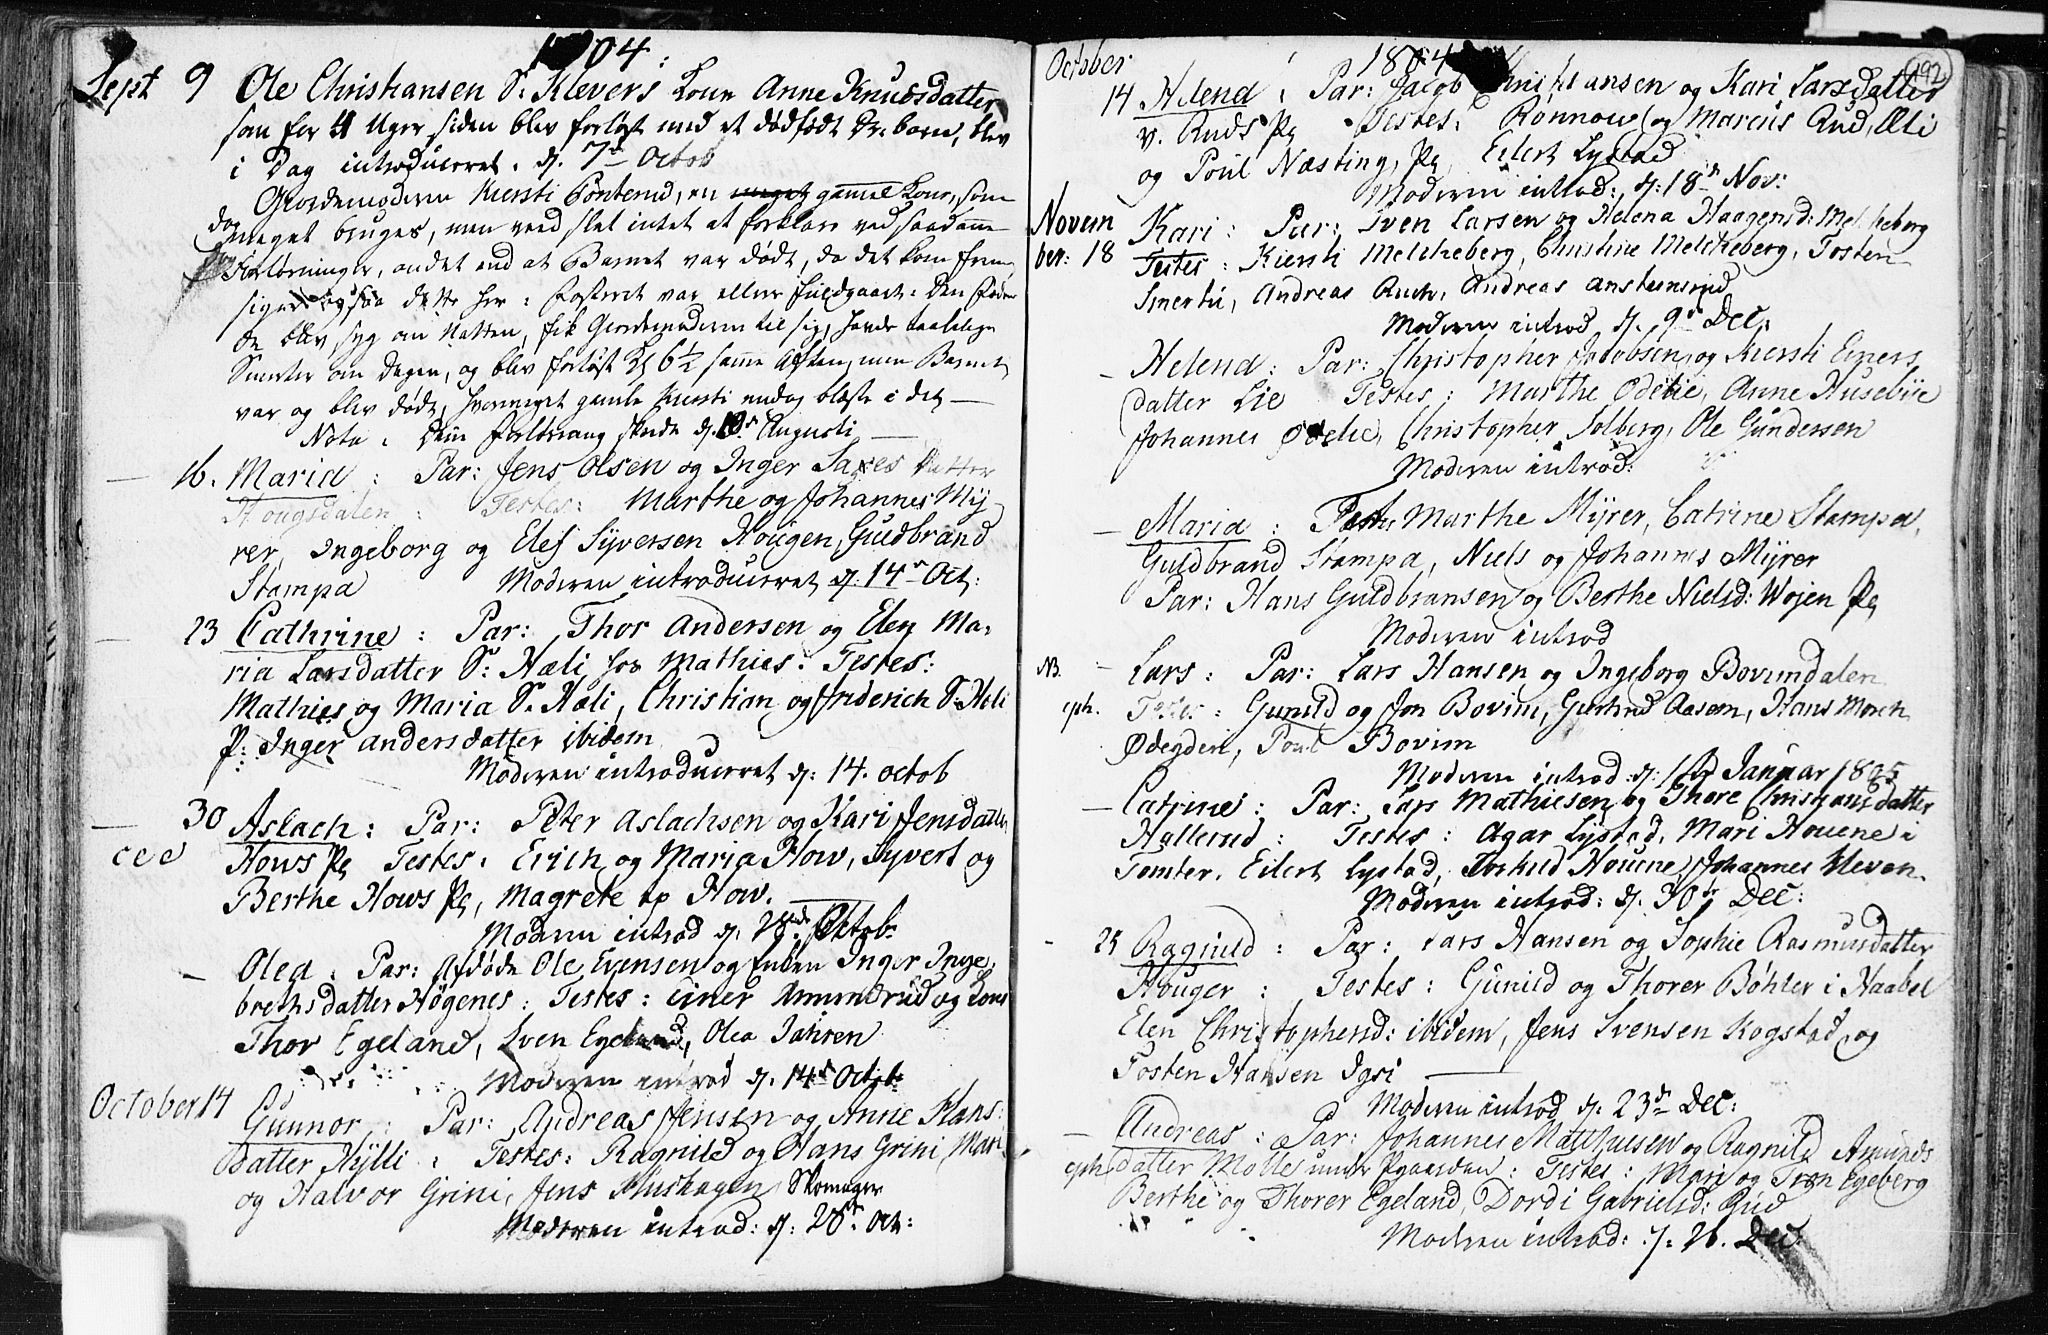 1804:
Sept 9 Ole Christiansen S: Klevers Kone Anne Knudsdatter
som for 4 Uger siden blev forløst med et dødfødt Dr: barn, blev
i Dag introduceret. d. 7de Octob
Giordemoderen Kiersti Tonterud, en meget gammel Kone, som
dog meget bruges, men veed slet intet at forklare ved saadanne
Forløsninger, andet end at Barnet var dødt, da det kom frem,
siger og saa dette her: Fosteret var ellers fuldgaaet: Den
de blev syg om Natten, fik Giordemoderen til sig, havde taalelige
Smerter om Dagen, og blev forløst Kl 6½ samme Aften, men Barnet
var og blev dødt, hvormeget gamle Kiersti endog blæste i det —
Nota: Denne forløsning skede d. Augusti —
— 16. Maria: Par: Jens Olsen og Inger Saxes datter
Hougsdalen: Testes: Marthe og Johannes Mÿ-
rer, Ingeborg og Elef Syversen Hougen, Gudbrand
Stampa Moderen introduceret d. 14de Oct:
— 23 Cathrine: Par: Thor Andersen og Elen Ma-
ria Larsdatter S: Hæli hos Mathies: Testes:
Mathies og Maria S. Hæli, Christian og Friderich S: Hæli
P: Inger Andersdatter ibidem
Moderen introduceret d: 14. octob
— 30 Aslach: Par: Peter Aslachsen og Kari Jensdatter
Hows Pg Testes: Erich og Maria How, Syvert og
Berthe Hows Pg, Magrete op How.
Moderen introd d. 28de Octob:
— Olea: Par: Afdøde Ole Evensen og Enken Inger Inge-
brethsdatter Høgenes: Testes: Einer Amundrud og Kone
Thor Egeland, Sven Egeland, Olea Jahren
Moderen introd d. 14de Octb:
October 14 Gunnor: Par: Andreas Jensen og Anne Hans-
datter Hylli: Testes: Ragnild og Hans Grini, Mari
og Halvor Grini, Jens Skomager
Moderen introd: d: 28de Oct:
192
October 1804
14 Helena: Par: Jacob Christiansen og Kari Larsdatter
v. Ruds Pg Testes: Rønnow og Marcus Rud, Oli
og Poul Næsting, Pg Eilert Lystad
Moderen introd: d: 18de Nov:
Novem
ber: 18 Kari: Par: Sven Larsen og Helena Haagensd: Melcheberg
Testes: Kiersti Melcheberg, Christine Melcheberg, Tosten
Smertu, Andreas Ruch, Andreas Anstensrud
Moderen introd d. 9de Dec:
— Helena: Par: Christopher Jacobsen og Kiersti Einers
datter Lie Testes: Marthe Ødelie, Anne Husebye
Johannes Ødelie, Christopher Solberg, Ole Gundersen
Moderen introd:
— Maria: Test: Marthe Mÿrer, Catrine Stampa,
Guldbrand Stampa, Niels og Johannes Mÿrer
Par: Hans Guldbransen og Berthe Nielsd: Wøjen Pg
Moderen introd
NB. — Lars: Par: Lars Hansen og Ingeborg Bovimdalen
eph. Testes: Gunild og Jon Bovim, Gertrud Aasem, Hans Moren
Ødegden, Poul Bovim
Moderen introd: d: Januar 1805
— Catrine: Par: Lars Mathiesen og Thore Christiansdatter
Hallerud: Testes: Agar Lystad, Mari Houene i
Tomter, Eilert Lystad, Torkild Houene, Johannes Uleven
Moderen introd: d. 30te Dec:
— 25 Ragnild: Par: Lars Hansen og Sophie Rasmusdatter
Houger: Testes: Gunild og Thorer Bøhler i Haabel
Elen Christophersd: ibidem, Jens Svensen Kogstad, og
Tosten Hansen Igsi —
Moderen introd d. 23de Dec:
— Andreas: Par: Johannes Matthiesen og Ragnild Amunds
eph. datter Molle under Pgaarden: Testes: Mari og Tron Egeberg
Berthe og Thorer Egeland, Dordi Gabrielsd: Rud
Moderen introd: d: 26. Dec: